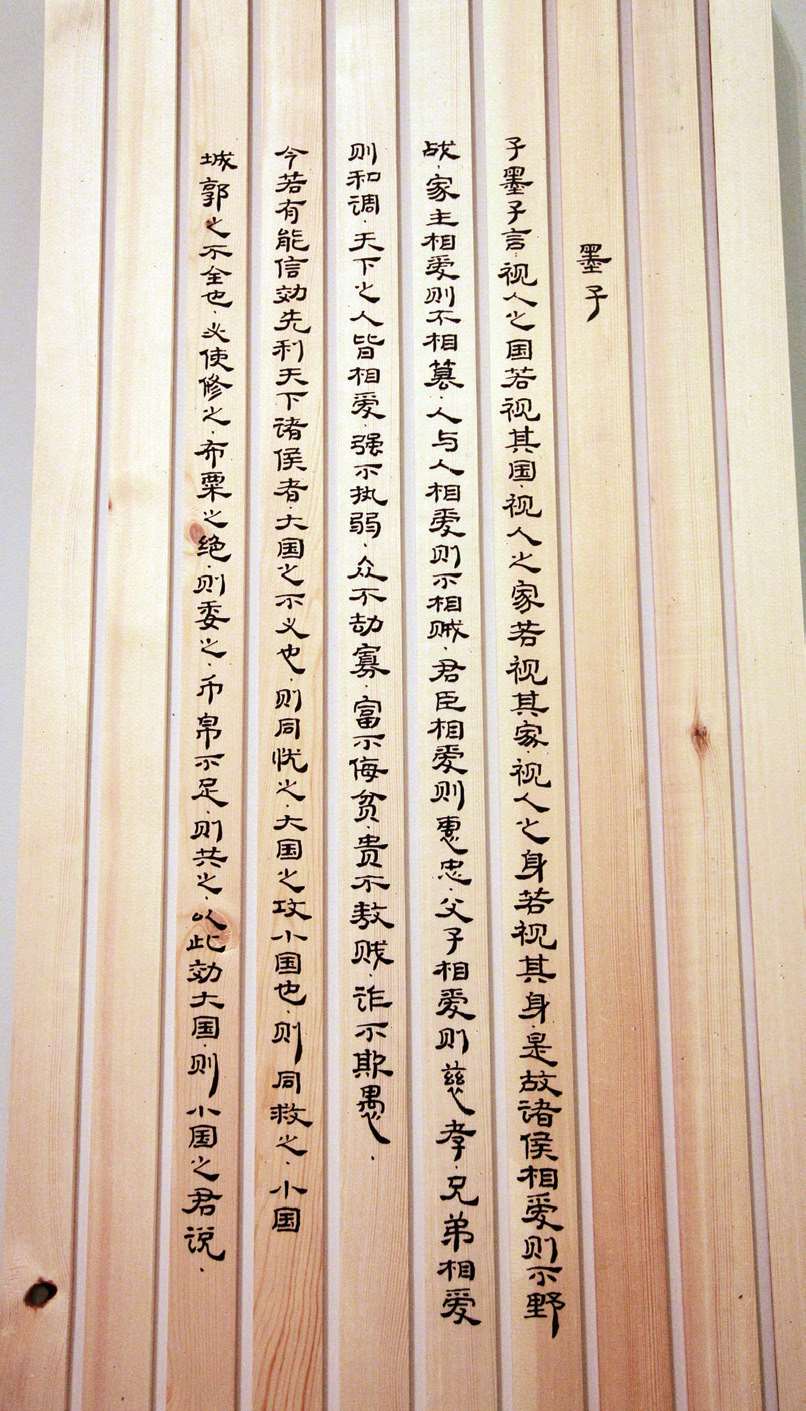 墨子
子墨子言·视人之国若视其国·视人之家若视其家·视人之身若视其身·是故诸侯相爱则不野
战·家主相爱则不相篡·人与人相爱则不相贼·君臣相爱则惠忠·父子相爱则慈孝·兄弟相爱
则和调·天下之人皆相爱·强不执弱·众不劫寡·富不侮贫·贵不敖贱·诈不欺愚·
今若有能信効先利天下诸侯者·大国之不义也·则同忧之·大国之攻小国也·则同救之·小国
城郭之不全也·必使修之·布粟之绝·则委之·币帛不足·则共之·以此効大国·则小国之君说·